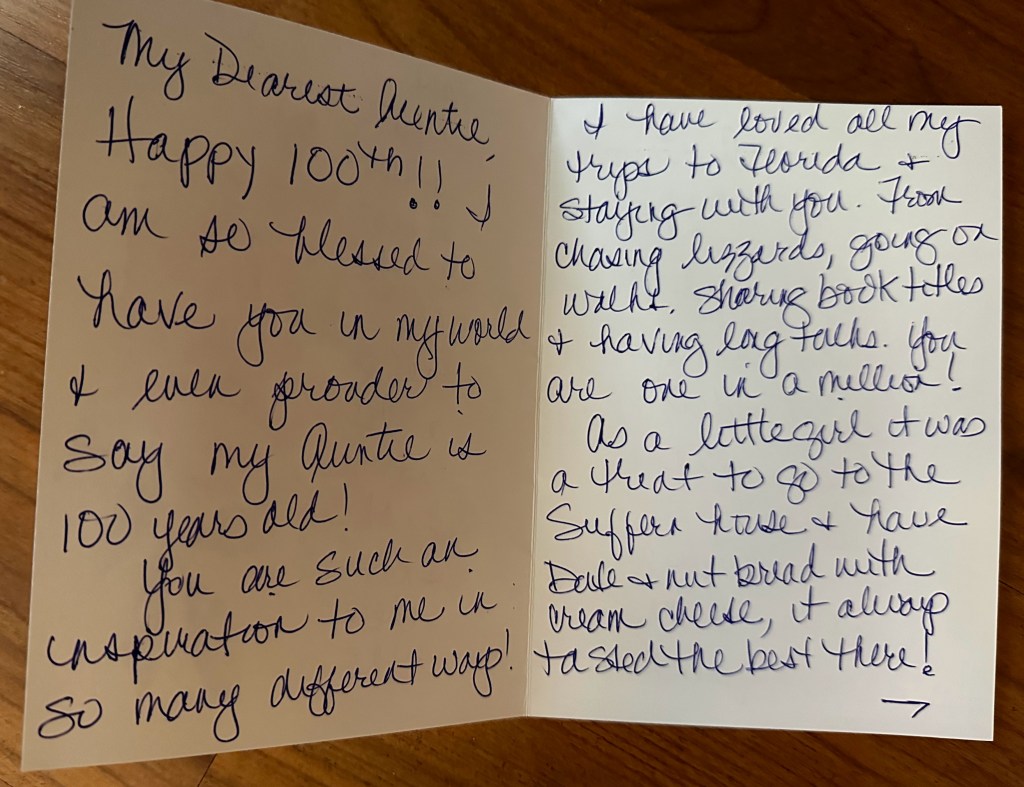 My Dearest Auntie,
Happy 100th!! I
am so blessed to
have you in my world
& even prouder to
say my Auntie is
100 years old!
You are such an
inspiration to me in
so many different ways!
I have loved all my
trips to Florida &
staying with you. From
chasing lizzards, going on
walks. Sharing book titles
& having long talks. You
are one in a million!
As a little girl it was
a treat to go to the
Suffern house & have
Date & nut bread with
cream cheese, it always
tasted the best there!
→